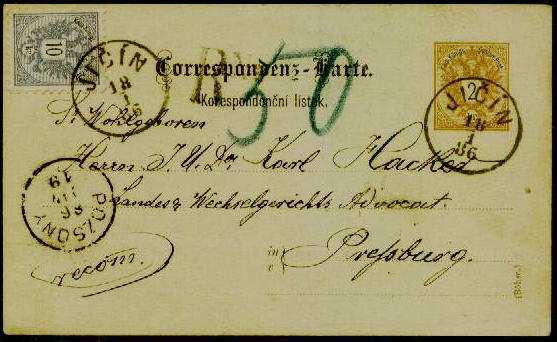 10
JIČÍN
18
86
R
50
Correspondenz-Karte.
Korespondenční lístek.
2
JIČÍN
18
1
86
Sr Wohlgeboren
Herrn J. U. Dr Karl Hacker
Landes & Wechselgerichts Advocat.
in
v
Pressburg.
POZSONY
19
86
recom.
(Böhm.)